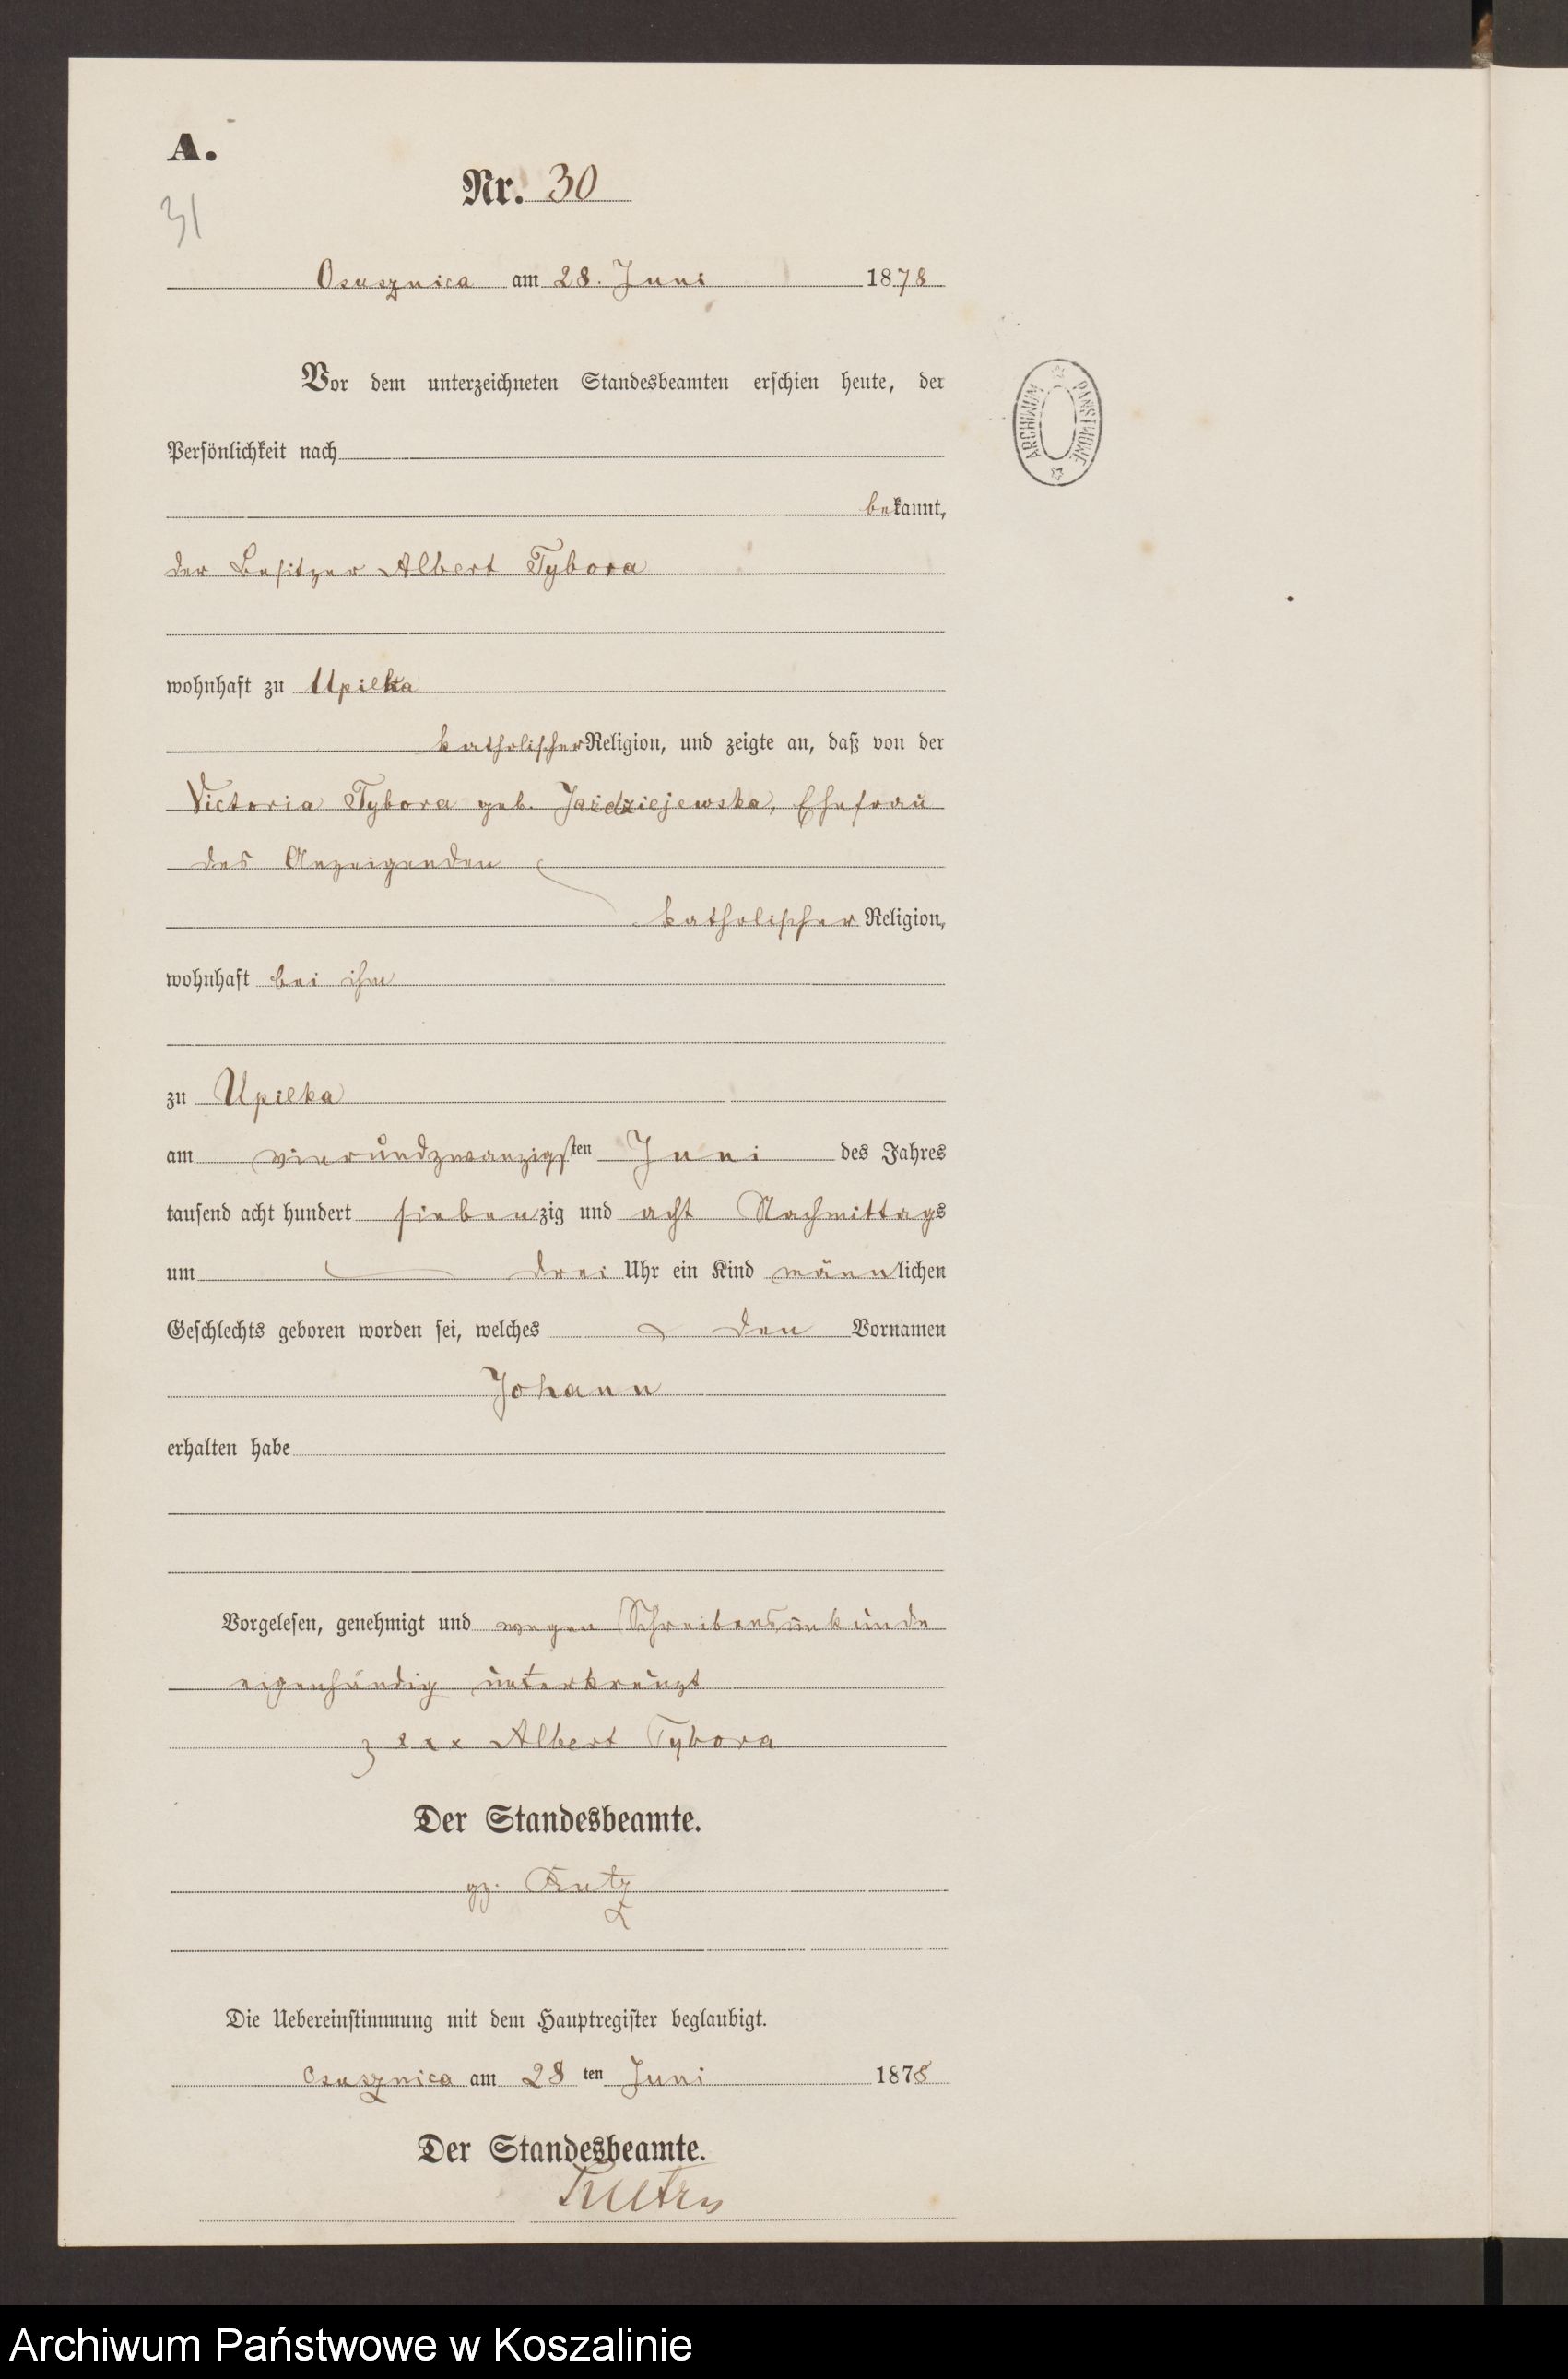 A.
Nr. 30
31
Osusznica am 28. Juni 1878
Vor dem unterzeichneten Standesbeamten erschien heute, der
Persönlichkeit nach
bekannt,
der Besitzer Albert Tybora
wohnhaft zu Upilka
katholischer Religion, und zeigte an, daß von der
Victoria Tybora geb. Jażdziejewska, Ehefrau
des Anzeigenden
katholischer Religion,
wohnhaft bei ihm
zu Upilka
am vierundzwanzigsten Juni des Jahres
tausend acht hundert siebenzig und acht Nachmittags
um drei Uhr ein Kind männlichen
Geschlechts geboren worden sei, welches den Vornamen
Johann
erhalten habe
Vorgelesen, genehmigt und wegen Schreibensunkunde
eigenhändig unterkreuzt
xxx Albert Tybora
Der Standesbeamte.
gz.
Die Uebereinstimmung mit dem Hauptregister beglaubigt.
Osusznica am 28 ten Juni 1878
Der Standesbeamte.
ARCHIWUM PAŃSTWOWE
Archiwum Państwowe w Koszalinie